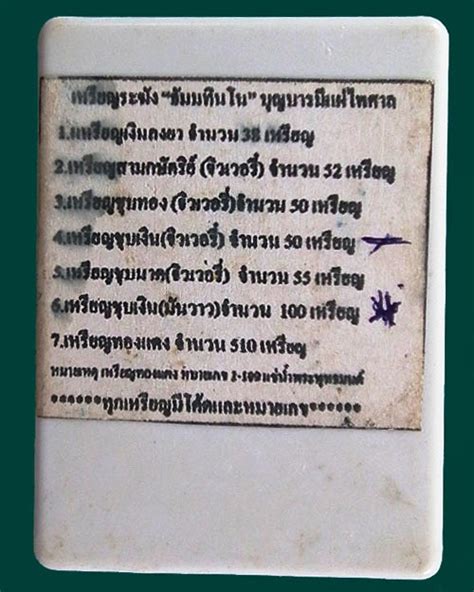 เหรียญระฆัง “ธัมมทินโน” บุญบารมีแผ่ไพศาล
1.เหรียญเงินลงยา จำนวน 38 เหรียญ
2.เหรียญสามกษัตริย์ (จิวเวอรี่) จำนวน 52 เหรียญ
3.เหรียญชุบทอง (จิวเวอรี่)จำนวน 50 เหรียญ
4.เหรียญชุบเงิน(จิวเวอรี่) จำนวน 50 เหรียญ
5.เหรียญชุบนาค(จิวเวอรี่) จำนวน 55 เหรียญ
6.เหรียญชุบเงิน(มันวาว)จำนวน 100 เหรียญ
7.เหรียญทองแดง จำนวน 510 เหรียญ
หมายเหตุ เหรียญทองแดง หมายเลข 1-109 แช่น้ำพระพุทธมนต์
******ทุกเหรียญมีโค๊ตและหมายเลข******